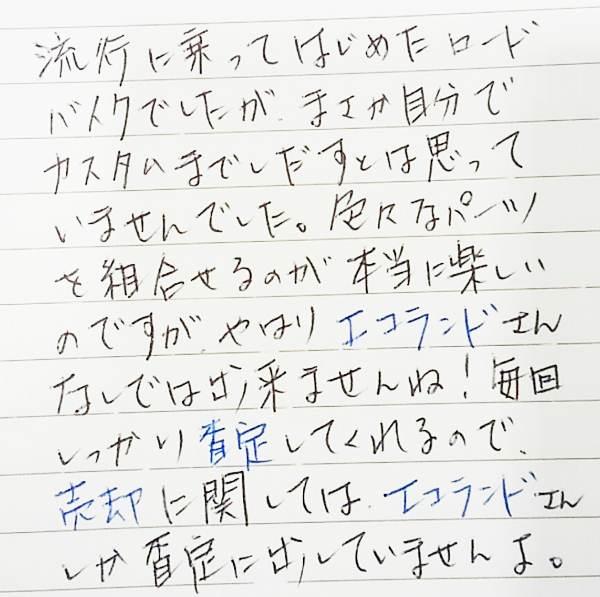 流行に乗ってはじめたロード
バイクでしたが、まさか自分で
カスタムまでしだすとは思って
いませんでした。色々なパーツ
を組合せるのが本当に楽しい
のですが、やはりエコランドさん
なしでは出来ませんね！毎回
しっかり査定してくれるので、
売却に関しては、エコランドさん
しか査定に出していませんよ。